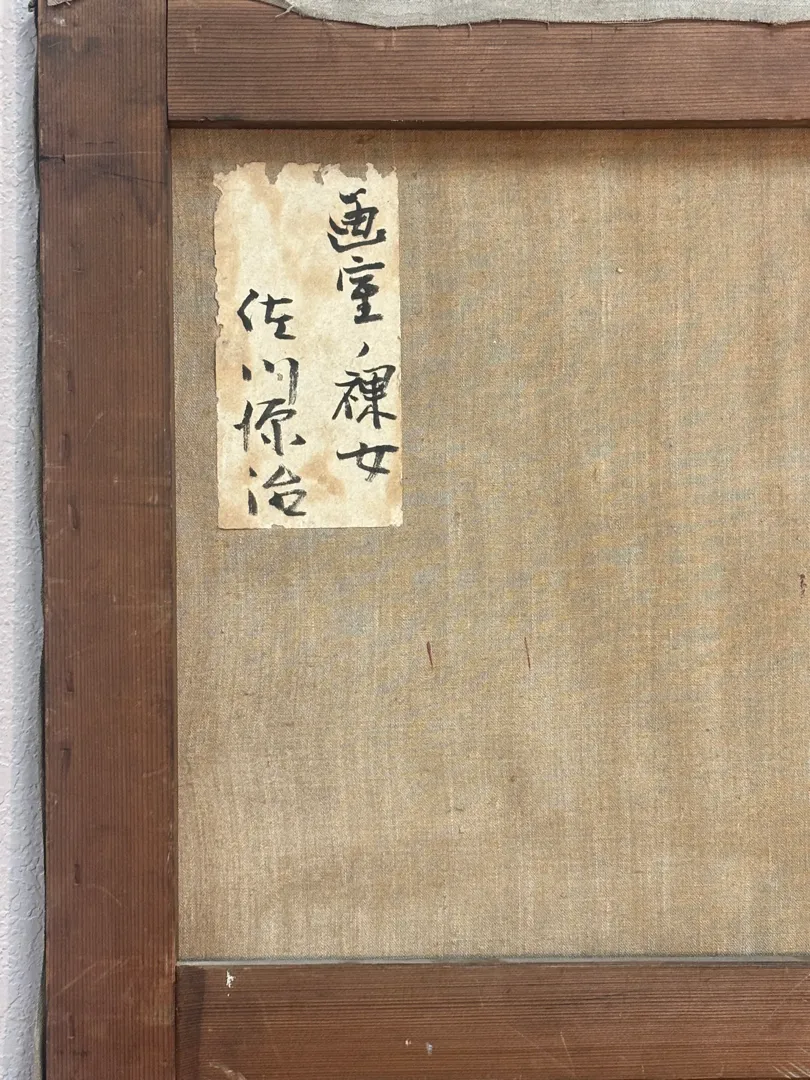 画室ノ裸女
佐川源治